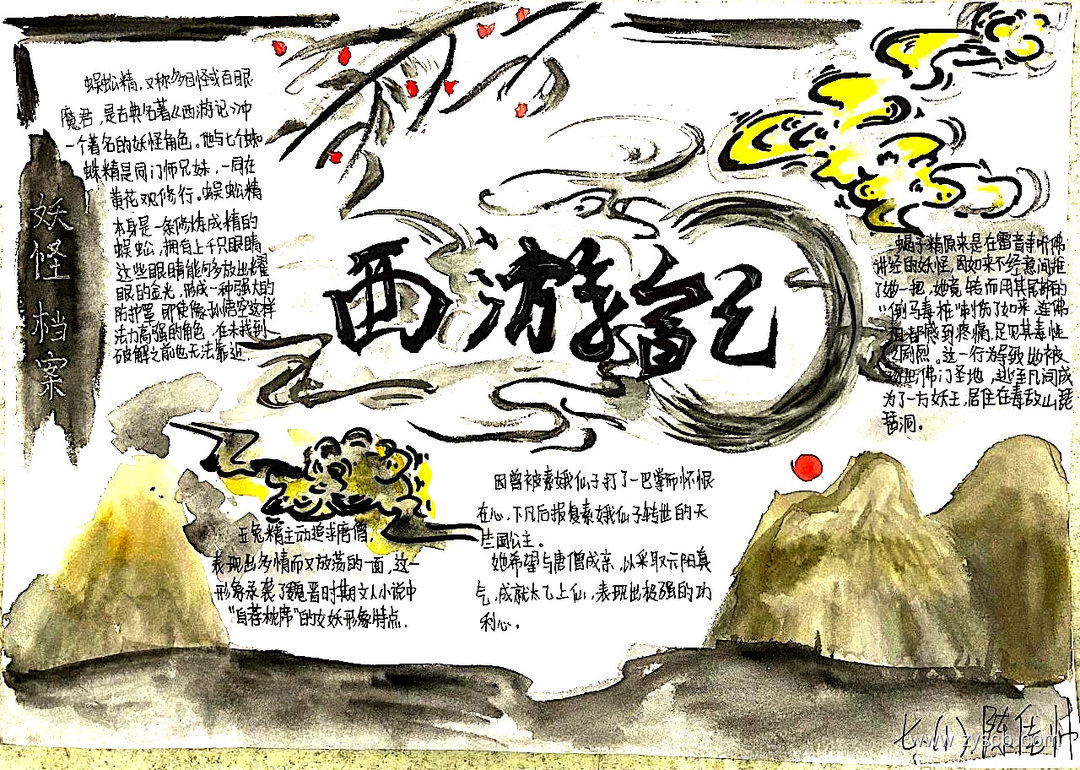 妖怪档案
蜈蚣精,又称多目怪或百眼
魔君,是古典名著《西游记》冲
一个著名的妖怪角色。他与七个蜘
蛛精是同门师兄妹,一同在
黄花观修行。蜈蚣精
本身是一条修炼成精的
蜈蚣,拥有上千只眼睛
这些眼睛能够多放出耀
眼的金光,形成一种强大的
防护罩 即使像孙悟空这样
法力高强的角色,在未找到
破解之前也无法靠近
西游记
蝎子精原来是在雷音寺听佛
讲经的妖怪,因如来不经意间推
了她一把,她竟转而用其尾部的
"倒马毒桩"刺伤了如来 连佛
祖都感到疼痛,足见其毒性
之剧烈。这一行为导致她被
佛门圣地,逃至凡间成
为了一方妖王,居住在毒敌山琵
琶洞。
玉兔精主动追求唐僧,
表现出多情而又放荡的一面,这一
形象承袭了魏晋时期文人小说中
"自荐枕席"的女妖形象特点.
因曾被素娥仙子打了一巴掌而怀恨
在心,下凡后报复素娥仙子转世的天
竺国公主。
她希望与唐僧成亲,以采取元阳真
气,成就太乙上仙,表现出极强的功
利心。
七(八)陈佳
www.zyscb.com